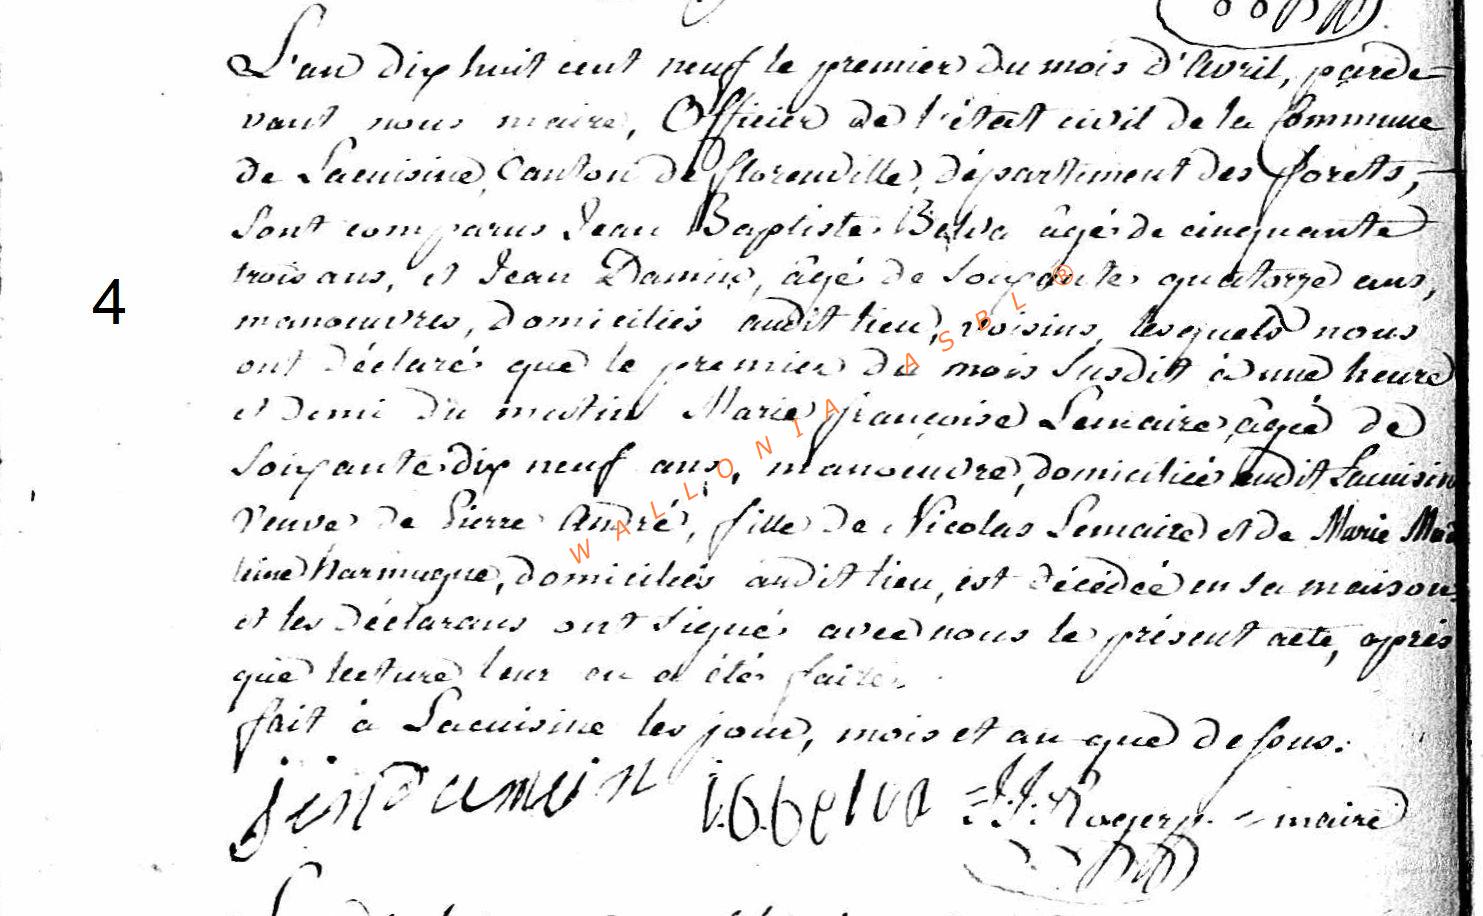 L'an dix huit cent neuf le premier du mois d'Avril, parde-
vant nous maire, Officier de l'état civil de la Commune
de Lacuisine, Canton de florenville, département des forets,
Sont comparus Jean Baptiste Belva âgé de cinquante
trois ans, et Jean Damin, âgé de Soixante quatorze ans,
4
manoeuvres, domiciliés audit lieu, voisins, lesquels nous
ont déclaré que le premier du mois Susdit à une heure
et demi du matin Marie françoise Lemaire, âgée de
Soixante dix neuf ans, manoeuvre, domiciliée audit Lacuisine
Veuve de Pierre André, fille de Nicolas Lemaire et de Marie Made
leine harmugne, domiciliés audit lieu, est décédée en sa maison,
et les déclarans ont signés avec nous le présent acte, après
que lecture leur en a été faite.
fait à Lacuisine les jour, mois et an que dessus.
jenDamein J.B.belva J.J. Rogery maire
WALLONIA ASBL ®